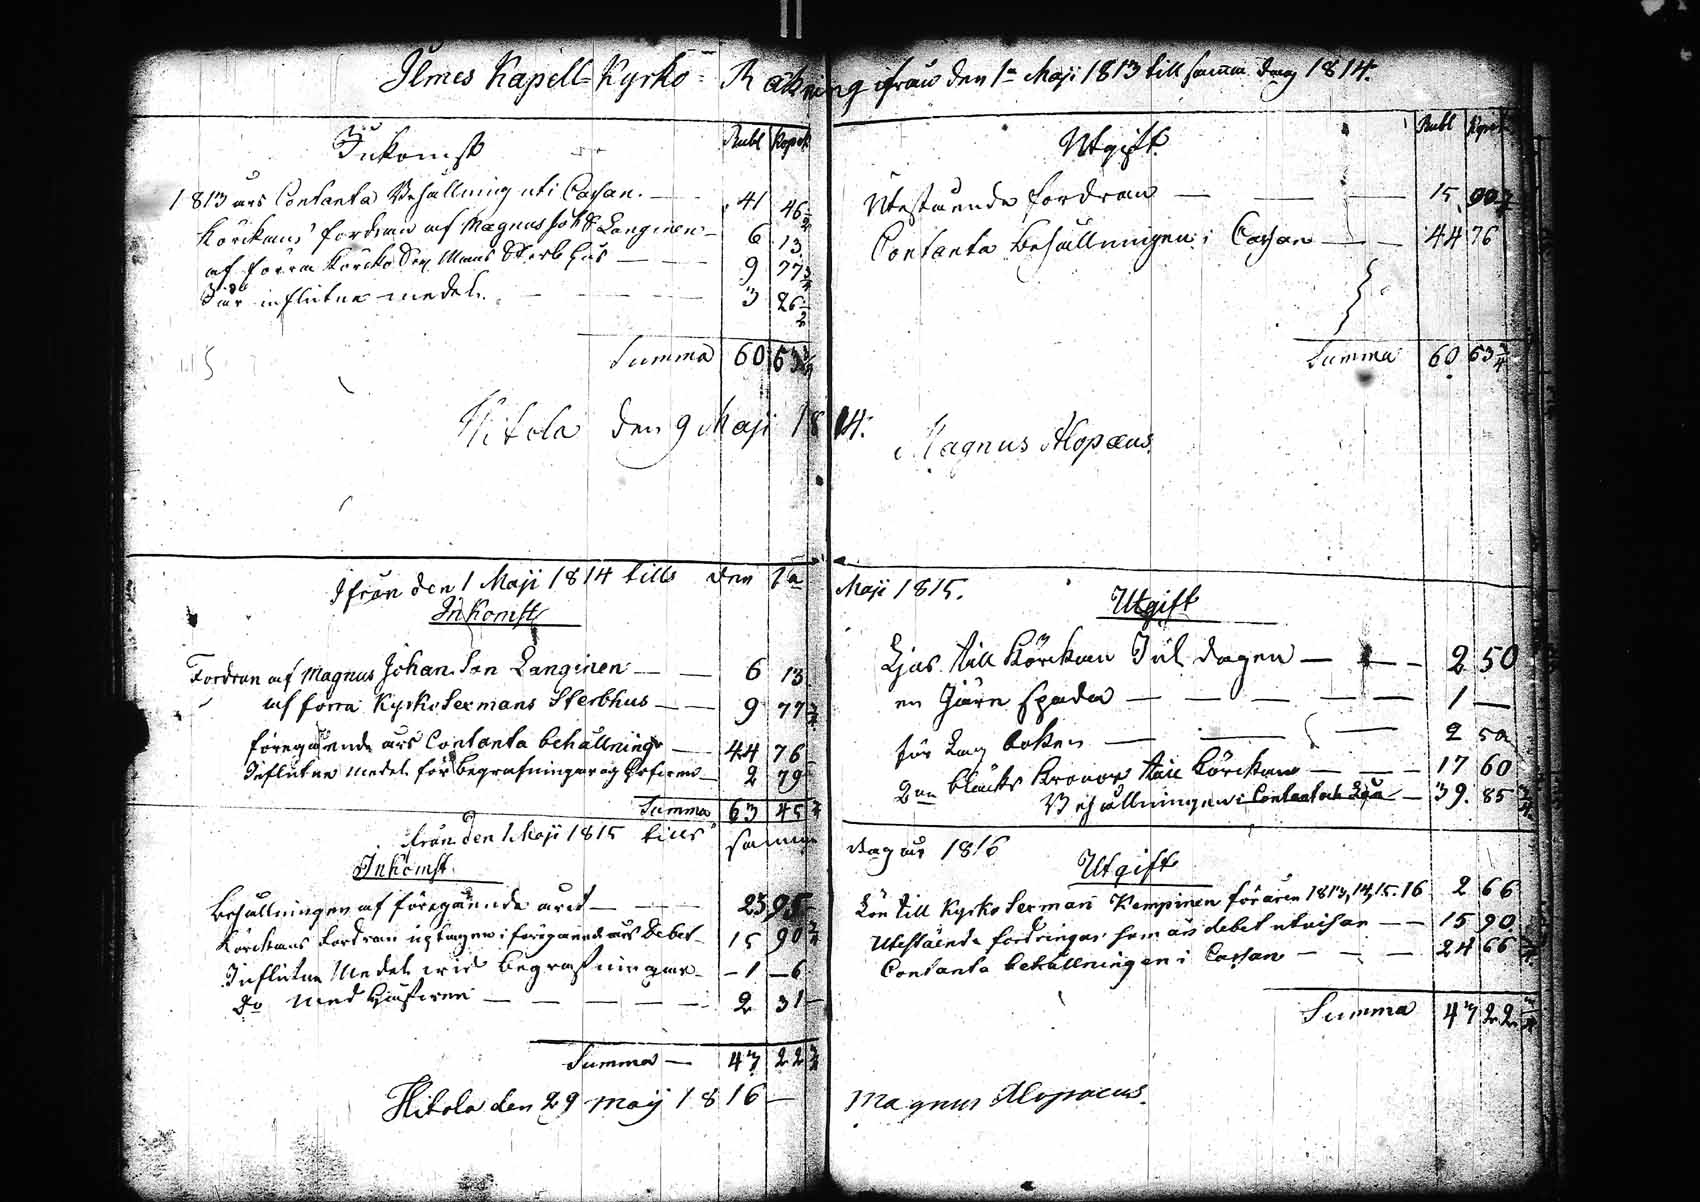 Ilmes Kapell-Kyrko-Räkning ifrån den 1a Maji 1813 till samma dag 1814.
Inkomst Rubl Kopek
1813 års Contanta Behållning uti Cassan. 41 46 1/2
Körckans fordran af Magnus Joh. Langinen 6 13
af förra Körcko Sexmans Sterbhus 9 77 3/4
I år influtne medel. 3 26 1/2
Summa 60 63 3/4
Utgift Rubl Kopek
Utestående fordran 15. 90 3/4
Contanta Behållningen i Cassan 44 76
Summa 60 63 3/4
Hitola den 9 Maji 1814. Magnus Alopæus.
Ifrån den 1 Maji 1814 tills den 1a Maji 1815.
Inkomst
Fordran af Magnus Johan Son Langinen 6 13
af förra Kyrko Sexmans Sterbhus 9 77 3/4
föregående års Contanta behållning 44 76
Influtne medel för begrafningar og 2 79
Summa 63 45 3/4
Utgift
Ljus till Körckan Jul dagen 2 50
en Järn spada 1
för Lag boken 2 50
2ne bläcks Kronor till Körckan 17 60
Behållningen i Contant och 39. 85 3/4
från den 1 Maji 1815 tills samma dag års 1816
Inkomst.
Behållningen af föregående året 23 95
Körckans fordran uptagen i föregående års Debet 15 90 3/4
Influtne Medel wid begrafningar 1 6
Do med Håfwen 2 31
Summa 47 22 3/4
Utgift
Lön till Kyrko Sexman Kempinen för åren 1813, 14, 15. 16 2 66
Utestående fordringar som års debet utvisar 15 90
Contanta behållningen i Cassan 24 66
Summa 47 22 3/4
Hitola den 29 Maij 1816 Magnus Alopaeus.